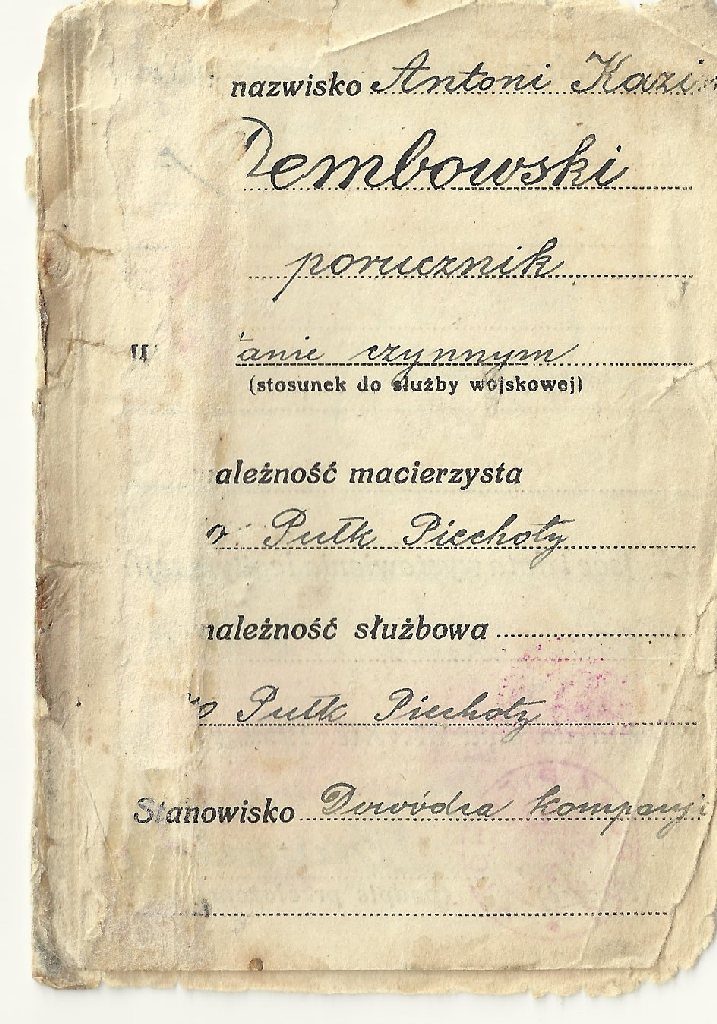 nazwisko Antoni Kazi
Dembowski
porucznik
anie czynnym
(stosunek do służby wojskowej)
ależność macierzysta
Pułk Piechoty
należność służbowa
Pułk Piechoty
Stanowisko Dowódca kompanji